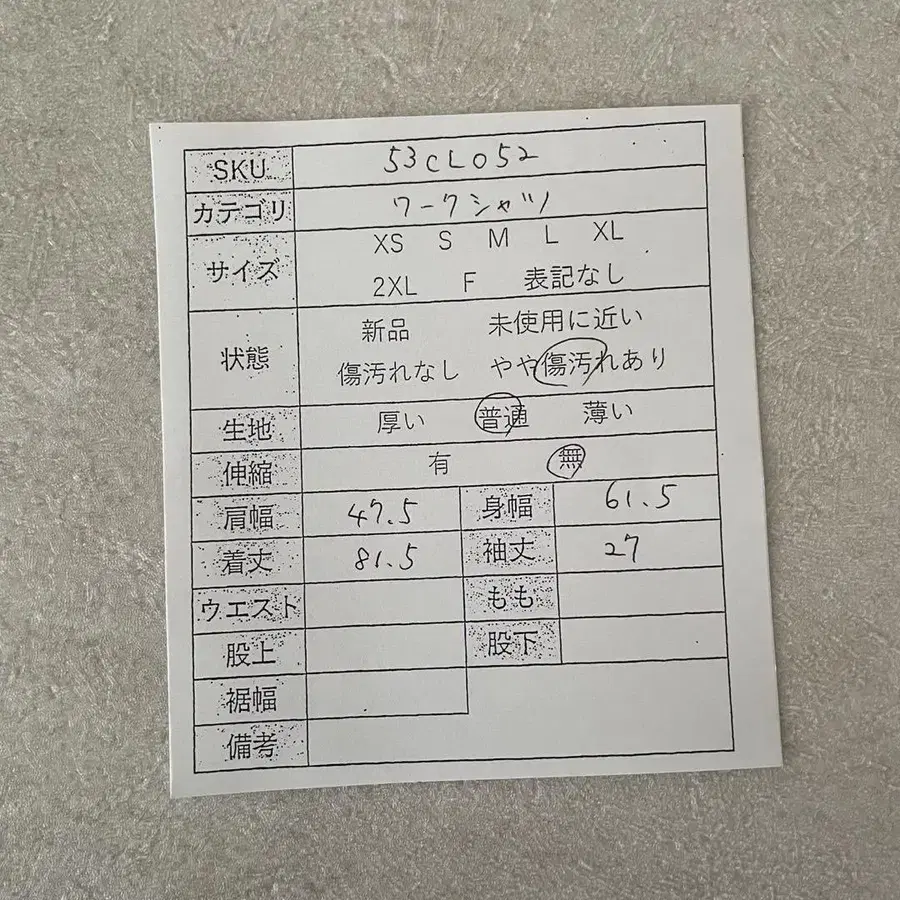 SKU 53CL052
カテゴリ ワークシャツ
サイズ XS S M L XL
2XL F 表記なし
状態 新品 未使用に近い
傷汚れなし やや傷汚れあり
生地 厚い 普通 薄い
伸縮 有 無
肩幅 47.5 身幅 61.5
着丈 81.5 袖丈 27
ウエスト もも
股上 股下
裾幅
備考